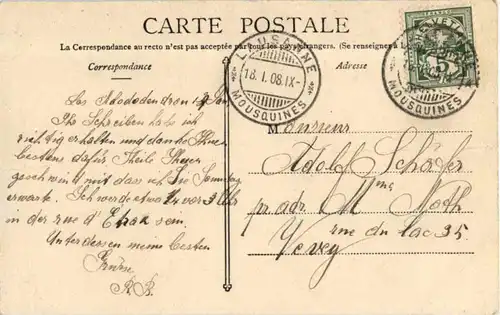 CARTE POSTALE
La Correspondance au recto n'est pas acceptée par tous les pays étrangers. (Se renseigner à
Correspondance
Adresse
LAUSANNE
18.I.08.IX-
MOUSQUINES
HELVETIA
5
MOUSQUINES
Ihr Schreiben habe ich
richtig erhalten und danke Ihnen
bestens dafür Theile Ihnen
geschwind mit dass ich Sie Sonntag
erwarte. Ich werde etwa 2 vor 3 Uhr
in der rue d' sein.
Unterdessen meine besten
Grüsse
Monsieur
Adolf Schäfer
pr. adr. Mme Noth
rue du lac 35
Vevey